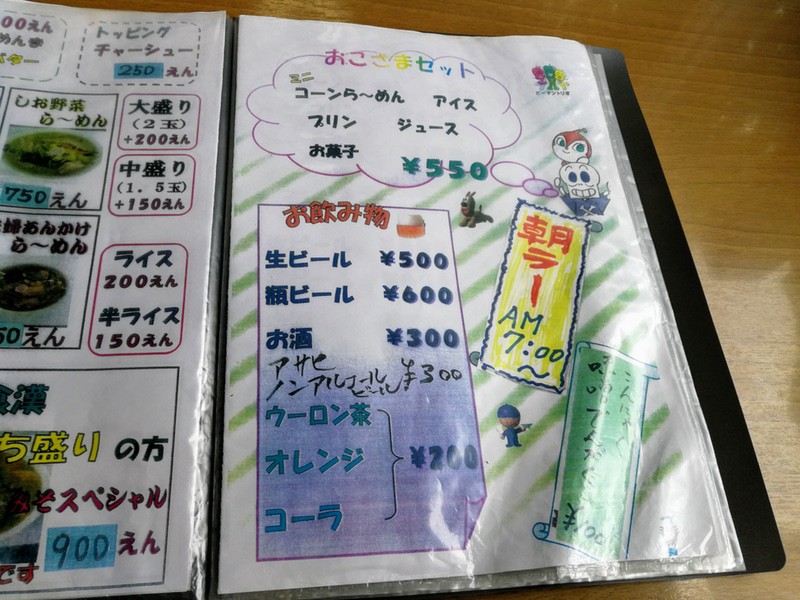 00えん
トッピング
チャーシュー
250えん
しお野菜
ら〜めん
750えん
大盛り
(2玉)
+200えん
中盛り
(1.5玉)
+150えん
あんかけ
ら〜めん
50えん
ライス
200えん
半ライス
150えん
盛りの方
みそスペシャル
900えん
です
おこさまセット
ミニ
コーンら〜めん アイス
プリン ジュース
お菓子 ¥550
ピーマントリオ
お飲み物
生ビール ¥500
瓶ビール ¥600
お酒 ¥300
アサヒ
ノンアルコールビール ¥300
ウーロン茶
オレンジ ¥200
コーラ
朝ラー
AM
7:00
〜
こんにゃく